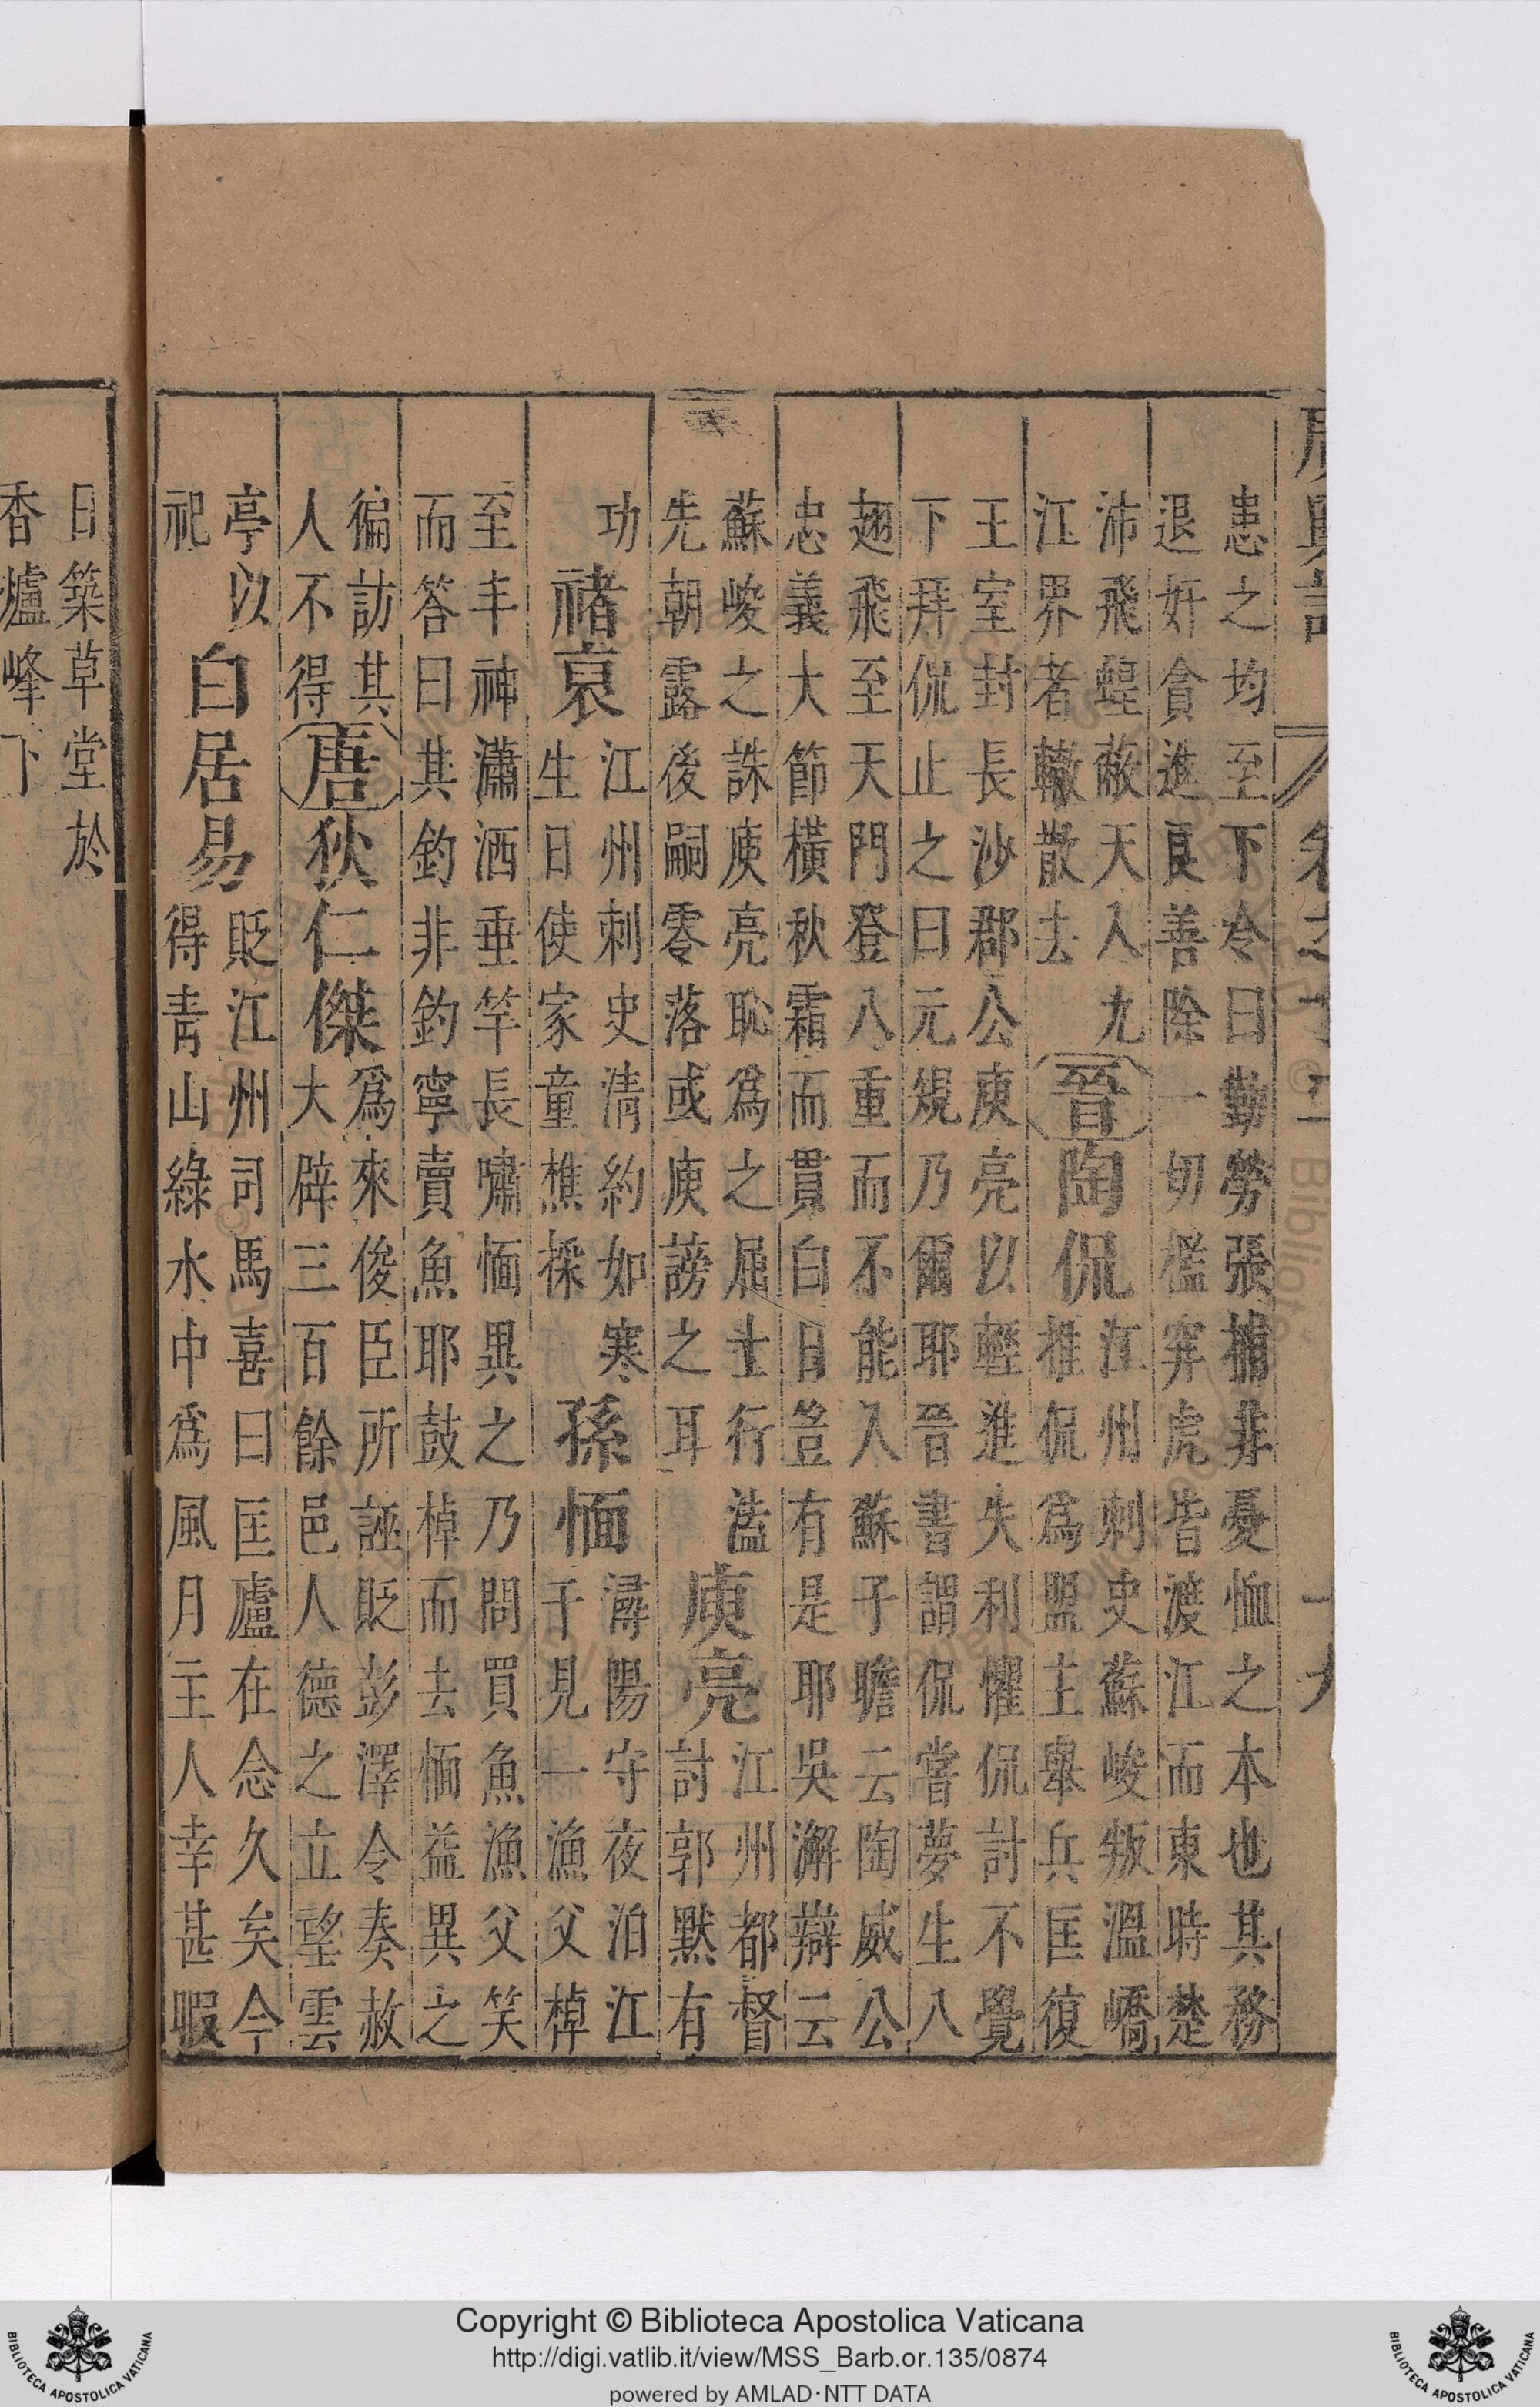 廣輿記
卷之十二
患之均至下令曰勤勞張捕非憂恤之本也其務
退奸貪進良善除一切檻穽虎皆渡江而東時楚
沛飛蝗蔽天入九
江界者輙散去
晉
陶侃
江州刺史蘇峻叛溫嶠
推侃爲盟主舉兵匡復
王室封長沙郡公庾亮以輕進失利懼侃討不覺
下拜侃止之曰元規乃爾耶晉書謂侃嘗夢生八
翅飛至天門登八重而不能入蘇子瞻云陶威公
忠義大節橫秋霜而貫白日豈有是耶吳澥辯云
蘇峻之誅庾亮恥爲之屈士行溘
先朝露後嗣零落或庾謗之耳
庾亮
江州都督
討郭默有
功
禇裒
江州刺史清約如寒
生日使家童樵採
孫愐
潯陽守夜泊江
于見一漁父棹
至丰神瀟洒垂竿長嘯愐異之乃問買魚漁父笑
而答曰其釣非釣寧賣魚耶鼓棹而去愐益異之
徧訪其
人不得
唐
狄仁傑
爲來俊臣所誣貶彭澤令奏赦
大辟三百餘邑人德之立望雲
亭以
祀
白居易
貶江州司馬喜曰匡廬在念久矣今
得靑山綠水中爲風月主人幸甚暇
日築草堂於
香爐峰下
Copyright © Biblioteca Apostolica Vaticana
http://digi.vatlib.it/view/MSS_Barb.or.135/0874
powered by AMLAD·NTT DATA